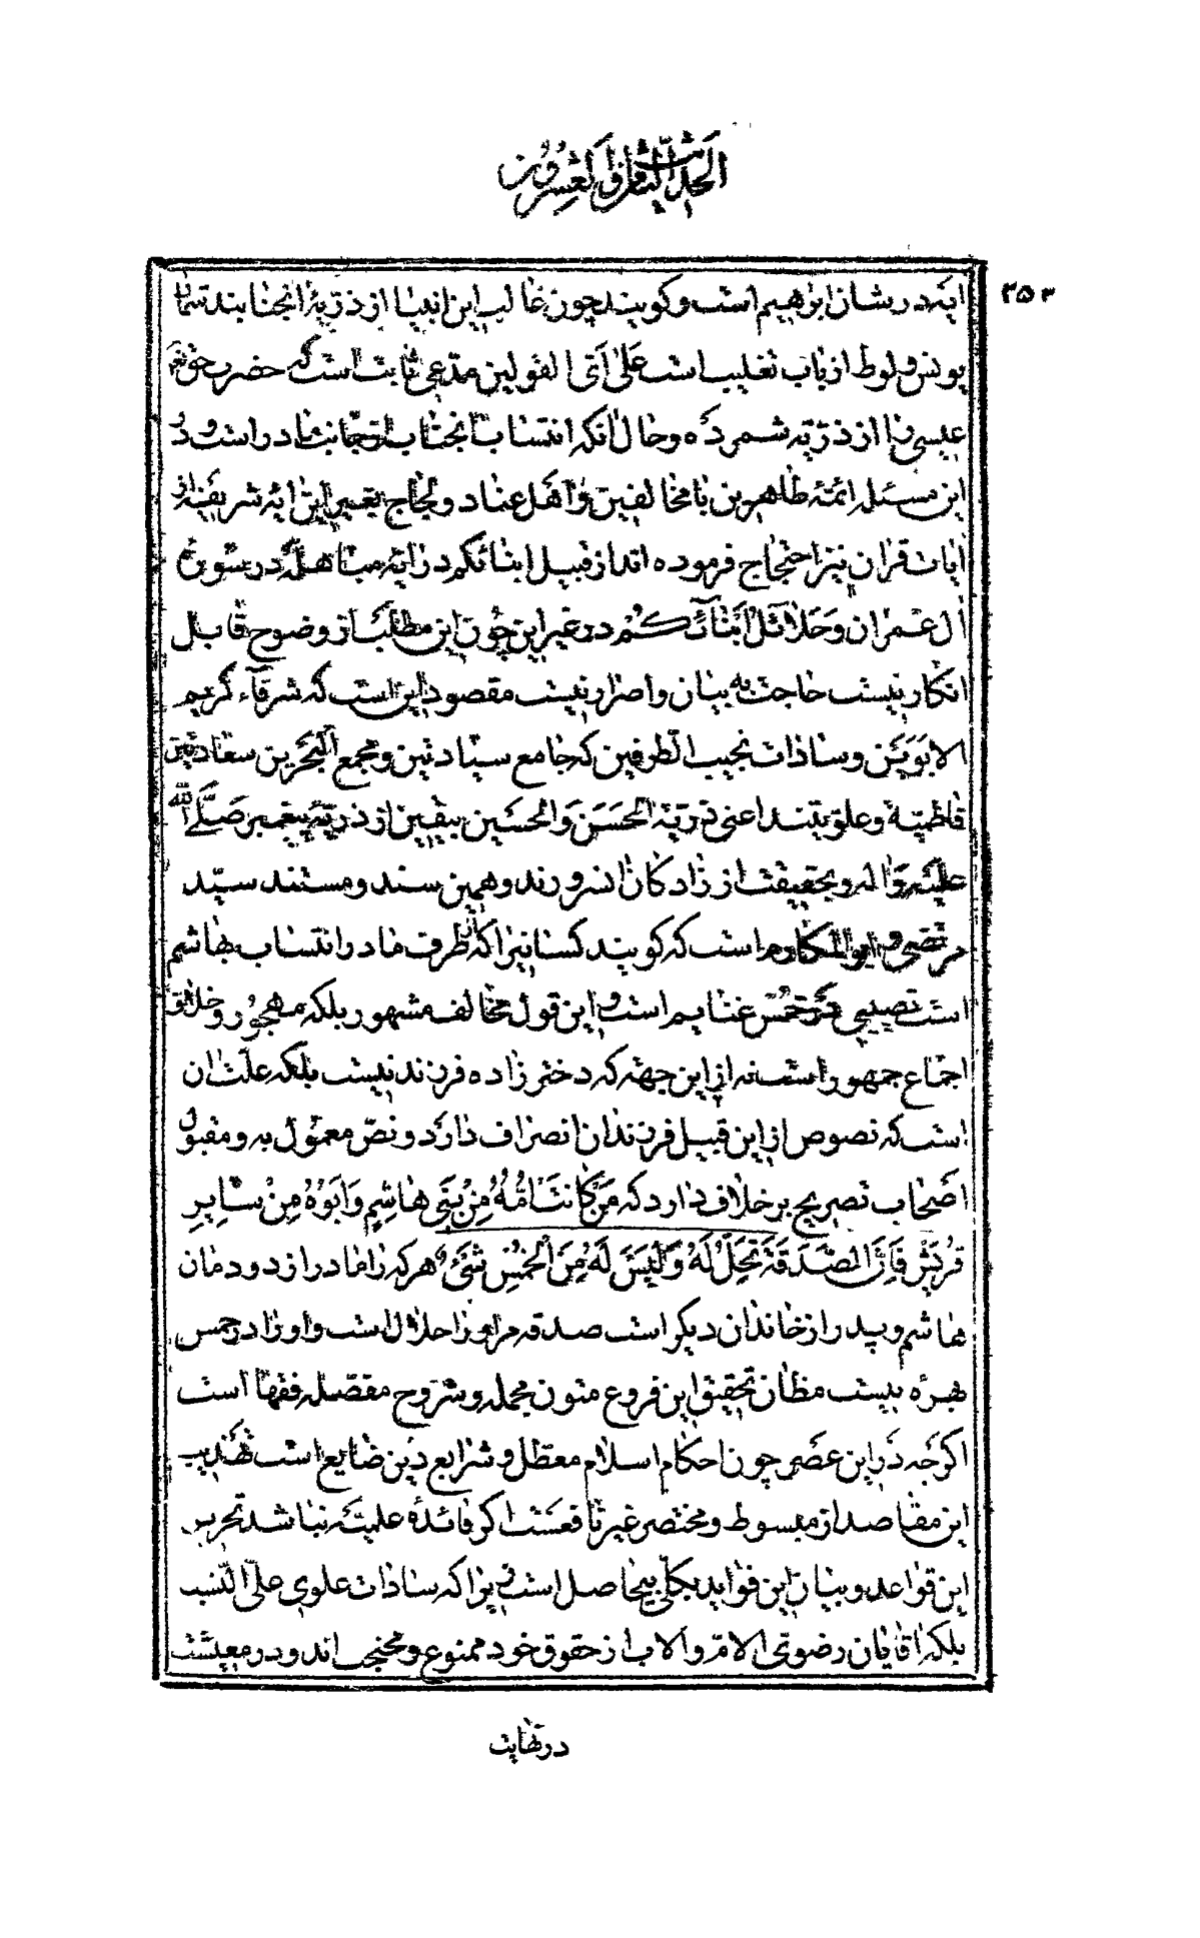 الحدیث الثانی والعشرون
۲۵۳
ایه در شان ابراهیم است و کویند چون غالب این انبیا از ذرّیهٔ انجنابند شمار
یونس و لوط از باب تغلیب است عَلیٰ اَیّ القولین مدّعی ثابت است که حضرت حق
عیسی را از ذرّیه شمرده و حال انکه انتساب انجناب از جانب مادر است و در
این مسئله ائمّهٔ طاهرین با مخالفین وَ اَهل عناد و لجاج بغیر این ایهٔ شریفه از
ایات قران نیز احتجاج فرموده اند از قبیل ابنائکم در ایهٔ مباهله در سورهٔ
اٰل عمران وَحَلائلُ اَبْنائکُمْ و غیر این چون این مطلب از وضوح قابل
انکار نیست حاجت به بیان و اصرار نیست مقصود این است که شرفاء کریم
الابوَین و سادات نجیب الطرفین که جامع سیادتین و مجمع البَحرین سعادتین
فاطمیّه و علویّتند اعنی ذرّیة الحَسَن وَالحسَین بیقین از ذرّیه پیغمبر صَلَّے اللّٰه
علیه وَاله و بحقیقت از زادکان انسرورند و همین سند و مستند سیّد
مرتضی و ابوالمکارم است که کویند کسانیرا که از طرف مادر انتساب بهاشم
است نصیبی در خمس غنایم است و این قول مخالف مشهور بلکه مهجور و خلاف
اجماع جمهور است نه از این جهة که دختر زاده فرزند نیست بلکه علّت ان
است که نصوص از این قبیل فرزندان انصراف دارد و نصّ معمول به و مقبول
اصحاب تصریح بر خلاف دارد که مَنْ کانَتْ اُمُّهُ مِنْ بَنی هاشِمٍ وَاَبُوهُ مِنْ سائِرِ
قُرَیْش فَاِنَّ الصَّدَقَةَ تَحِلُّ لَهُ وَلَیْسَ لَهُ مِنَ الْخُمْسِ شَیْئٌ هر که را مادر از دودمان
هاشم و پدر از خاندان دیکر است صدقه مر او را حلال است و او را در خمس
بهره نیست مظان تحقیق این فروع متون مجمله و شروح مفصّله فقها است
اکرچه در این عصر چون احکام اسلام معطّل و شرایع دین ضایع است تهذیب
این مقاصد از مبسوط و مختصر غیر نافع است اکر فائدهٔ علمیّه نباشد تحریر
این قواعد و بیان این فواید بکلّی بیحاصل است زیرا که سادات علوی علیّ النسب
بلکه اقایان رضوی الامّ والاب از حقوق خود ممنوع و محتجب اند و در معیشت
در نهایت